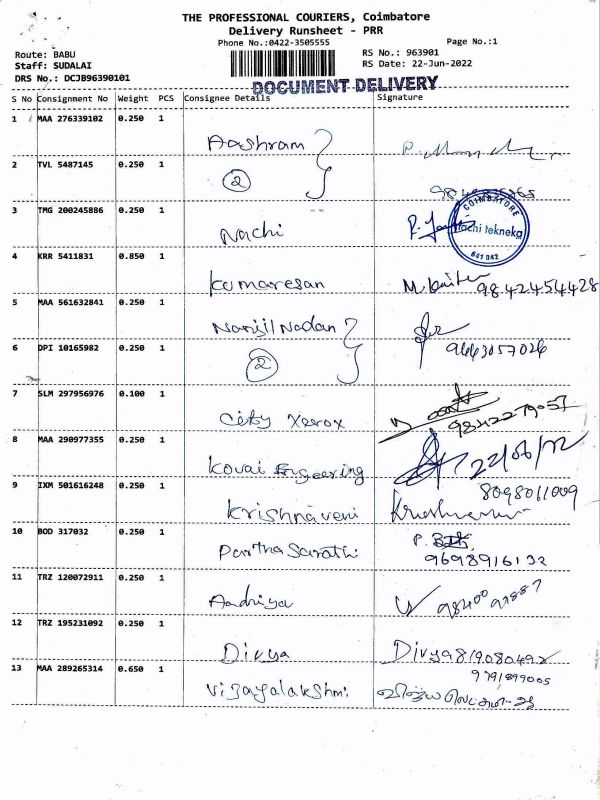 THE PROFESSIONAL COURIERS, Coimbatore
Delivery Runsheet - PRR
Phone No.:0422-3505555
Page No.:1
Route: BABU
RS No.: 963901
Staff: SUDALAI
RS Date: 22-Jun-2022
DRS No.: DCJB96390101
DOCUMENT DELIVERY
S No Consignment No Weight PCS Consignee Details Signature
1 MAA 276339102 0.250 1
Aashram
2 TVL 5487145 0.250 1
2
3 TMG 200245886 0.250 1
Nachi
COIMBATORE
Nachi tekneka
641 042
4 KRR 5411831 0.850 1
Kumaresan
9842454428
5 MAA 561632841 0.250 1
Nanjil Nadan
6 DPI 10165982 0.250 1
2
9663057026
7 SLM 297956976 0.100 1
City Xerox
9842279057
8 MAA 290977355 0.250 1
Kovai Engeering
22/06/22
9 IXM 501616248 0.250 1
8098011009
Krishnaveni
10 BOD 317032 0.250 1
Partha Sarathi
9698916132
11 TRZ 120072911 0.250 1
Aadhiya
12 TRZ 195231092 0.250 1
Divya
Divya 819080492
13 MAA 289265314 0.650 1
9791899005
Vijayalakshmi